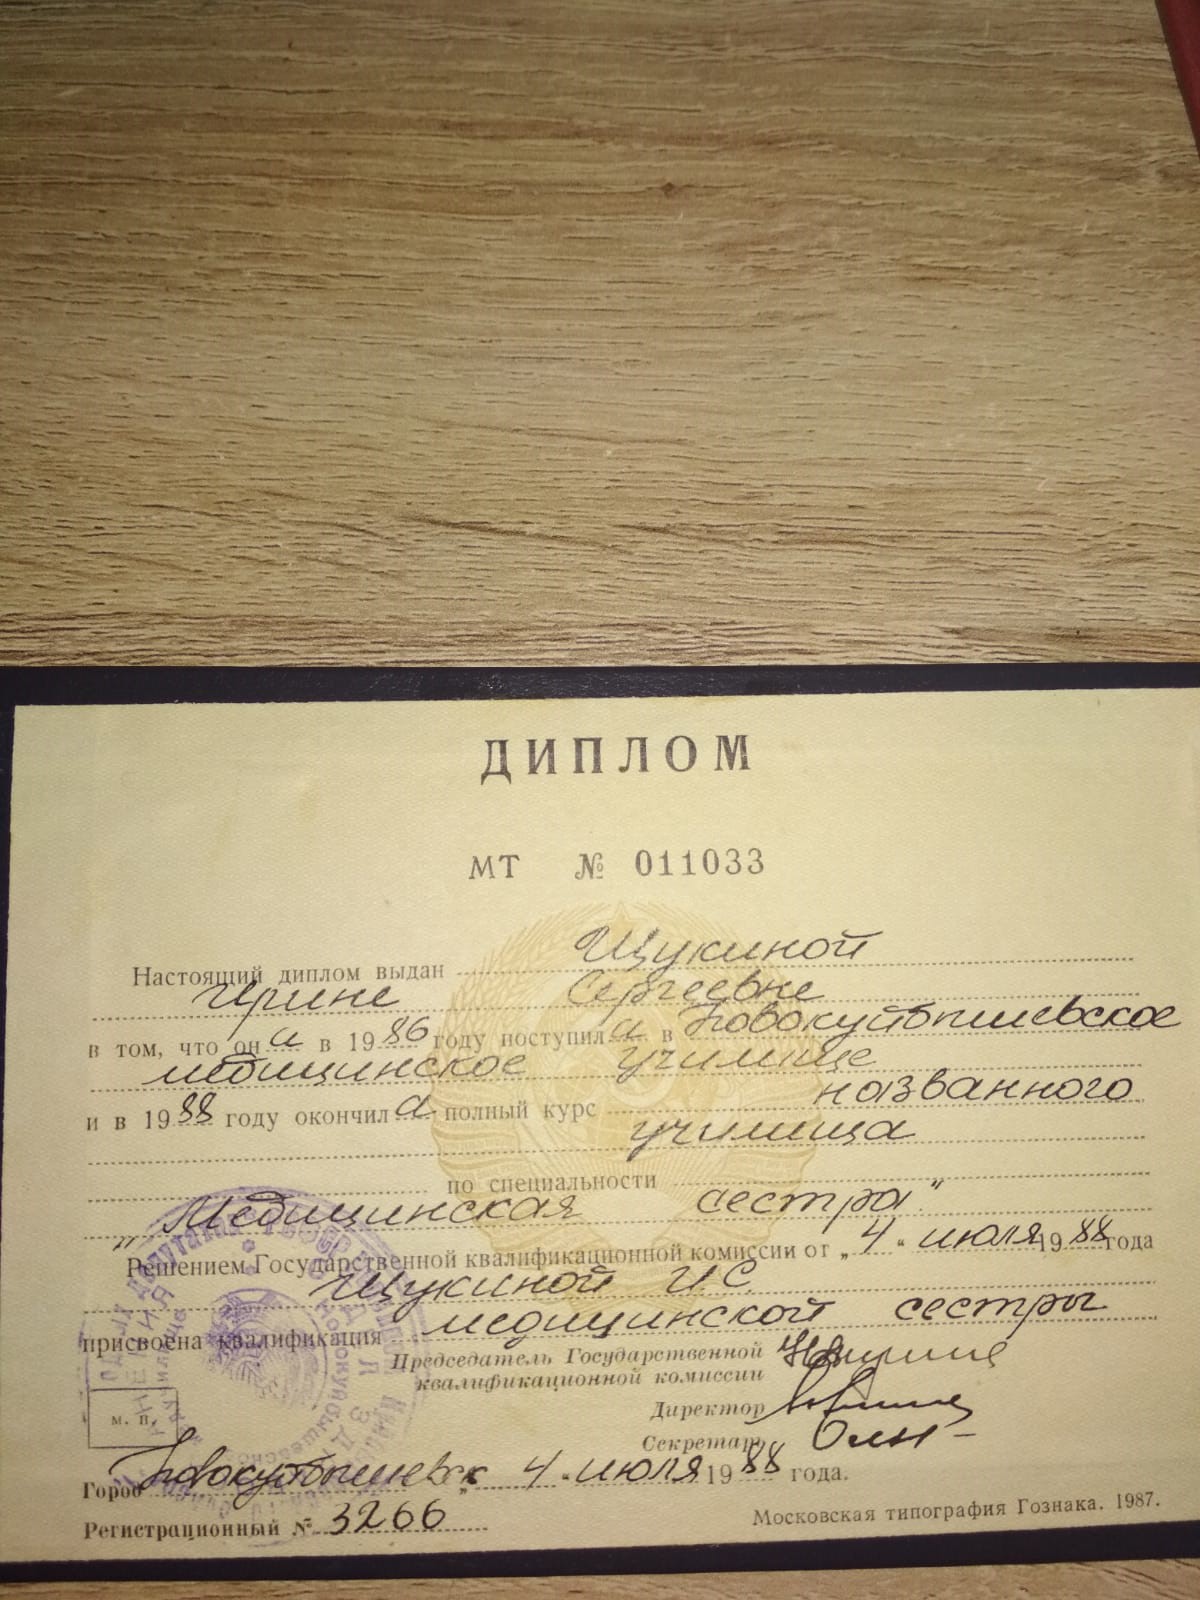 ДИПЛОМ
МТ № 011033
Настоящий диплом выдан Щукиной
Ирине Сергеевне
в том, что он а в 1986 году поступил а в Новокуйбышевское
медицинское училище
и в 1988 году окончил а полный курс названного
училища
по специальности
„Медицинская сестра"
Решением Государственной квалификационной комиссии от „4" июля 1988 года
Щукиной И.С.
присвоена квалификация медицинской сестры
Председатель Государственной
квалификационной комиссии
Директор
Секретарь
м. п.
Город Новокуйбышевск 4 июля 1988 года.
Регистрационный № 3266
Московская типография Гознака. 1987.